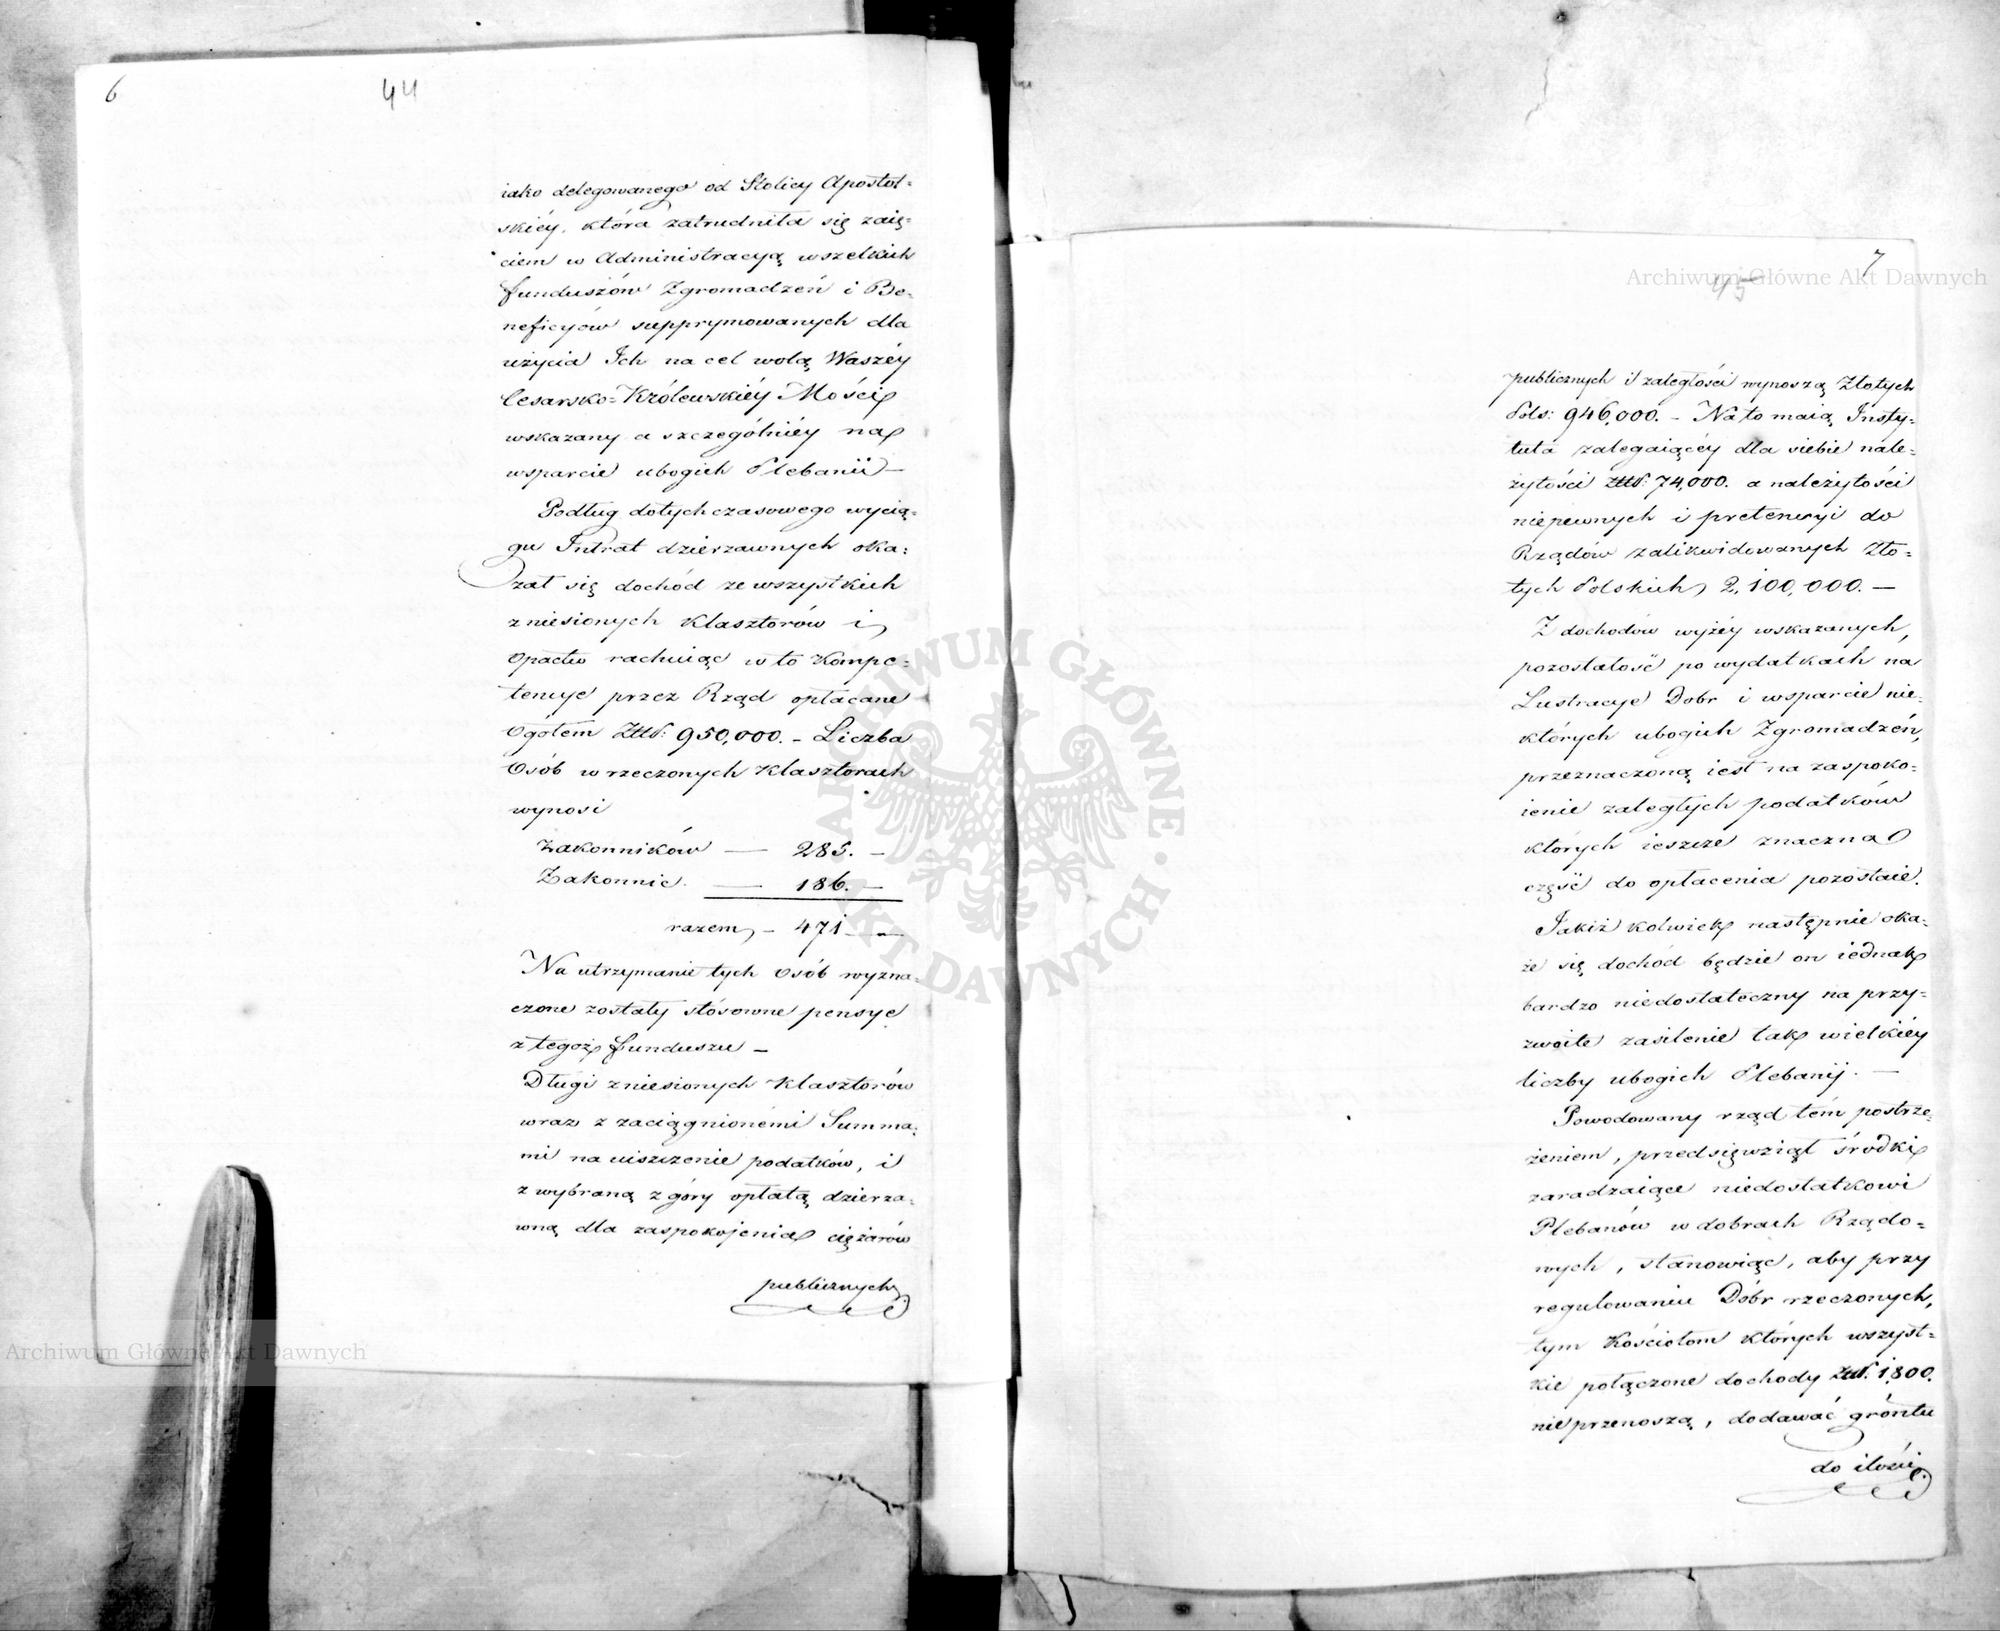 6
44
iako delegowanego od Stolicy Apostol=
skiéy, która zatrudniła się zaię=
ciem w Administracyą wszelkich
funduszów Zgromadzeń i Be=
neficyów supprymowanych dla
użycia Ich na cel wolą Waszéy
Cesarsko=Królewskiéy Mości
wskazany a szczególniéy na
wsparcie ubogich Plebanii —
Podług dotychczasowego wycią=
gu Intrat dzierzawnych oka=
zał się dochód ze wszystkich
zniesionych Klasztorów i
Opactw rachuiąc w to Kompe=
tencye przez Rząd opłacane
Ogółem Złtt: 950,000. – Liczba
Osób w rzeczonych Klasztorach
wynosi
Zakonników — 285. –
Zakonnic. — 186. –
razem, – 471 —
Na utrzymanie tych Osób wyzna=
czone zostały stósowne pensye
z tegoż funduszu –
Długi zniesionych Klasztorów
wraz z zaciągnionémi Summa=
mi na uiszczenie podatków, i
z wybraną z góry opłatą dzierza=
wną dla zaspokojenia ciężarów
publicznych
7
45
publicznych i zaległości wynoszą Złotych
Pols: 946,000. – Na to maią Insty=
tuta zalegaiącéy dla siebie nale=
żytości Złtt: 74,000. a należytości
niepewnych i pretensyi do
Rządów zalikwidowanych Zło=
tych Polskich, 2,100,000. —
Z dochodów wyżéy wskazanych,
pozostałość po wydatkach na
Lustracye Dobr i wsparcie nie=
których ubogich Zgromadzeń,
przeznaczoną iest na zaspoko=
ienie zaległych podatków
których ieszcze znaczna
część do opłacenia pozostaie.
Jakiż kolwiek następnie oka=
że się dochód będzie on iednak
bardzo niedostateczny na przy=
zwoite zasilenie tak wielkiéy
liczby ubogich Plebanij. —
Powodowany rząd tém postrze=
żeniem, przedsięwziął środki
zaradzaiące niedostatkowi
Plebanów w dobrach Rządo=
wych, stanowiąc, aby przy
regulowaniu Dóbr rzeczonych,
tym Kościołom których wszyst=
kie połączone dochody Złt. 1,800.
nieprzenoszą, dodawać gróntu
do ilości
Archiwum Główne Akt Dawnych
Archiwum Główne Akt Dawnych
ARCHIWUM GŁÓWNE · AKT DAWNYCH ·